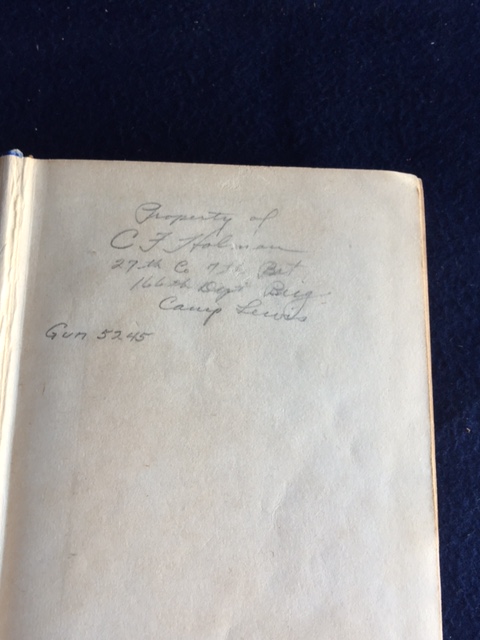 Property of
C F Holman
27th Co 7th Bat
166th Dept Brig.
Camp Lewis
Gun 5245